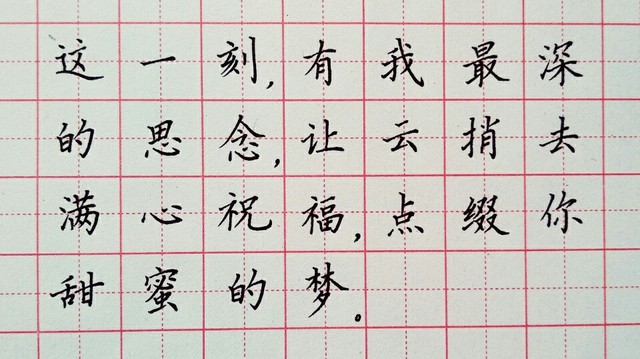 这一刻,有我最深
的思念,让云捎去
满心祝福,点缀你
甜蜜的梦。